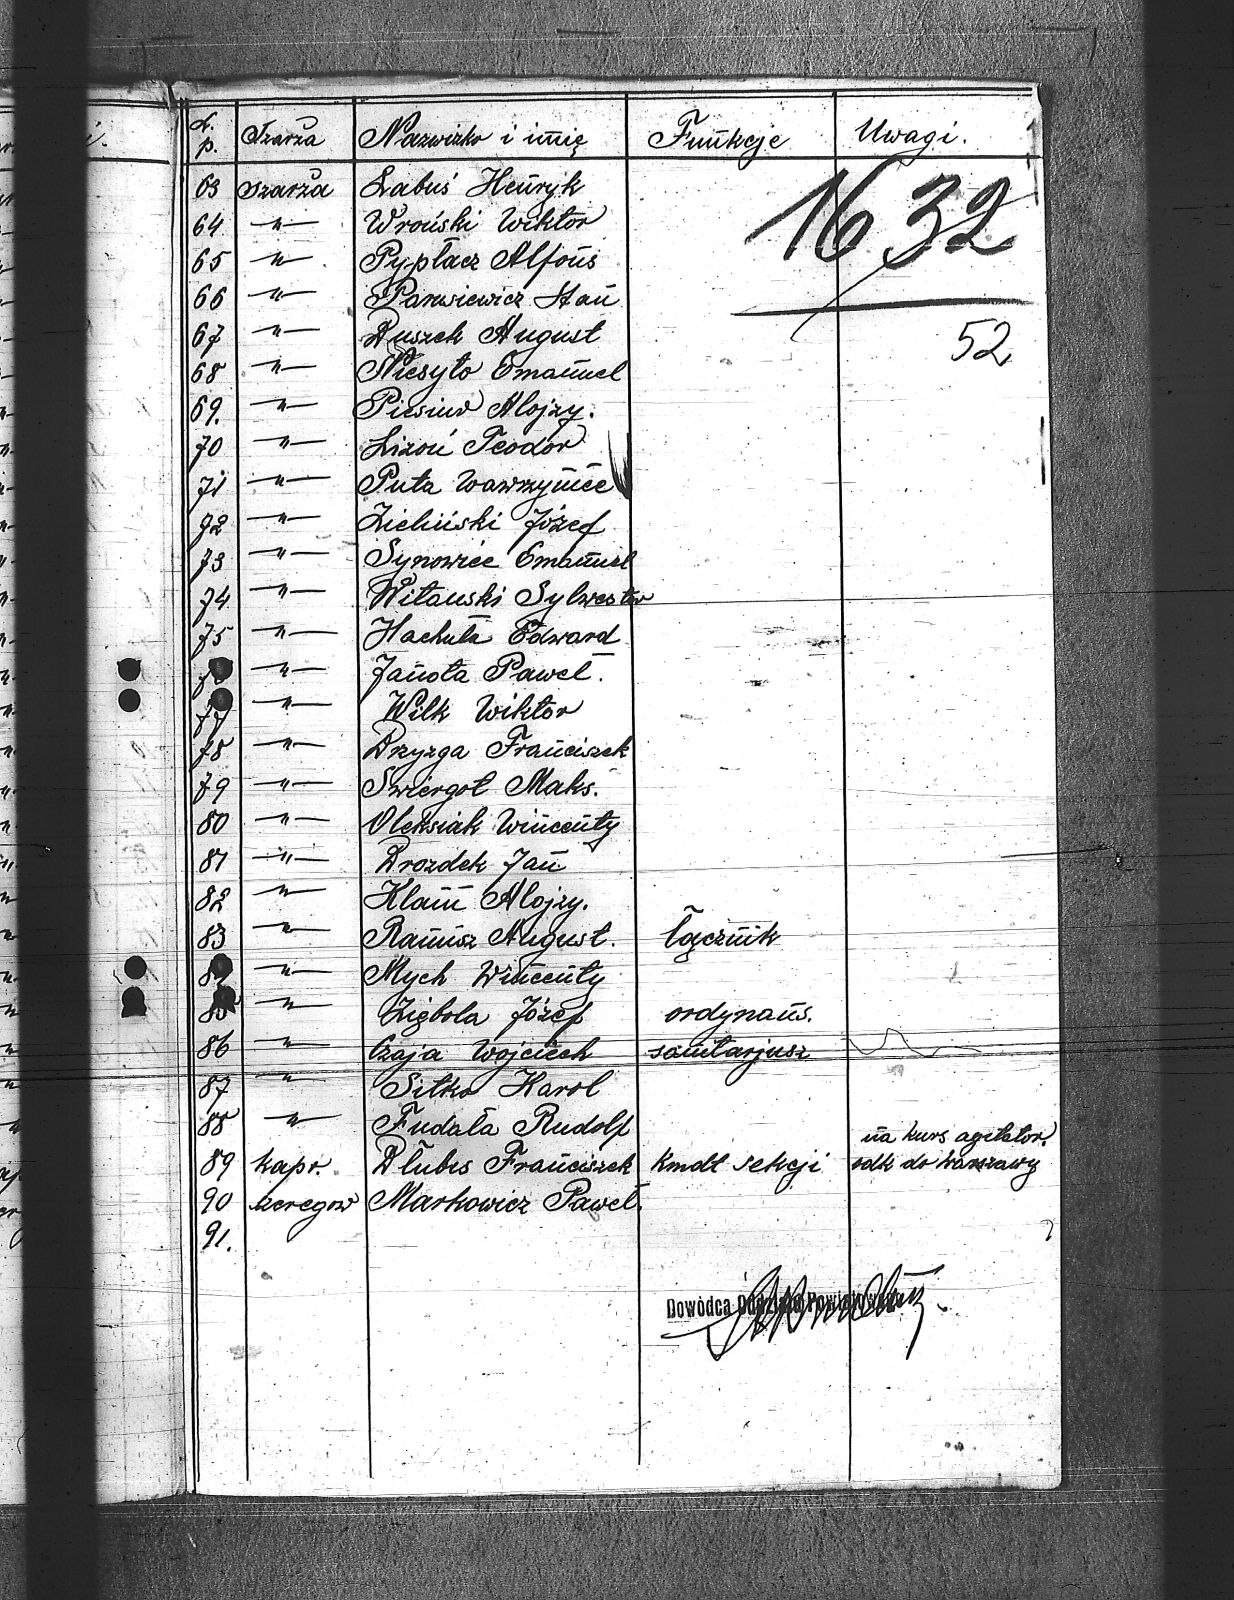 L. p. Szarża Nazwizko i imię Funkcje Uwagi.
1632
52
63 szarża Labuś Henryk
64 -"- Wroński Wiktor
65 -"- Pypłacz Alfons
66 -"- Stan
67 -"- Duszek August
68 -"- Niesyto Emanuel
69. -"- Alojzy.
70 -"- Lizoń Teodor
71 -"- Puta Wawrzyniec
72 -"- Zieliński Józef
73 -"- Synowiec Emanuel
74 -"- Witański Sylwester
75 -"- Hachuła Edward
-"- Janota Paweł.
77 -"- Wilk Wiktor
78 -"- Dzyzga Franciszek
79 -"- Swiergot Maks.
80 -"- Oleksiak Wincenty
81 -"- Drozdek Jan
82 -"- Klam Alojzy.
83 -"- August. łącznik
-"- Mych Wincenty
85 -"- Ziębola Józef ordynans.
86 -"- Czaja Wojciech sanitarjusz
87 -"- Sitko Karol
88 -"- Fudała Rudolf
na kurs agitator.
89 kapr. Dłubis Franciszek kmdt sekcji odk do Warszawy
90 szeregow Markowicz Paweł.
91.
Dowódca